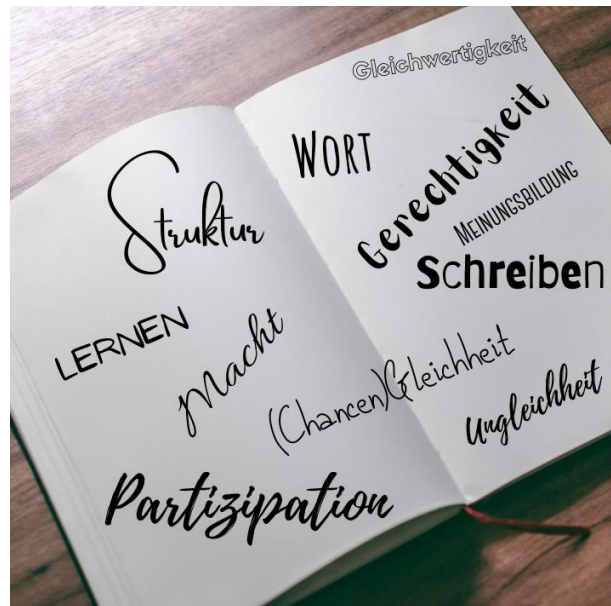 Gleichwertigkeit
WORT
Gerechtigkeit
Struktur
MEINUNGSBILDUNG
Schreiben
LERNEN
Macht
(Chancen)Gleichheit
Ungleichheit
Partizipation